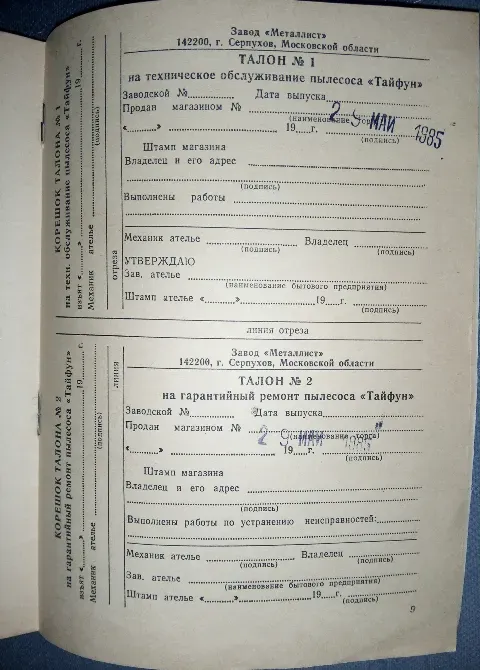 Завод «Металлист»
142200, г. Серпухов, Московской области
ТАЛОН № 1
на техническое обслуживание пылесоса «Тайфун»
Заводской № Дата выпуска
Продан магазином №
(наименование торга)
2 9 МАЙ 1985
« » 19 г.
(подпись)
Штамп магазина
Владелец и его адрес
(подпись)
Выполнены работы
Механик ателье Владелец
(подпись) (подпись)
УТВЕРЖДАЮ
Зав. ателье
(наименование бытового предприятия)
Штамп ателье « » 19 г.
(подпись)
КОРЕШОК ТАЛОНА № 1
на техн. обслуживание пылесоса «Тайфун»
изъят « » 19 г.
Механик ателье
(подпись)
отреза
линия отреза
линия
Завод «Металлист»
142200, г. Серпухов, Московской области
ТАЛОН № 2
на гарантийный ремонт пылесоса «Тайфун»
Заводской № Дата выпуска
Продан магазином №
(наименование торга)
2 9 МАЙ 1985
« » 19 г.
(подпись)
Штамп магазина
Владелец и его адрес
(подпись)
Выполнены работы по устранению неисправностей:
Механик ателье Владелец
(подпись) (подпись)
Зав. ателье
(наименование бытового предприятия)
Штамп ателье « » 19 г.
(подпись)
КОРЕШОК ТАЛОНА № 2
на гарантийный ремонт пылесоса «Тайфун»
изъят « » 19 г.
Механик ателье
(подпись)
9